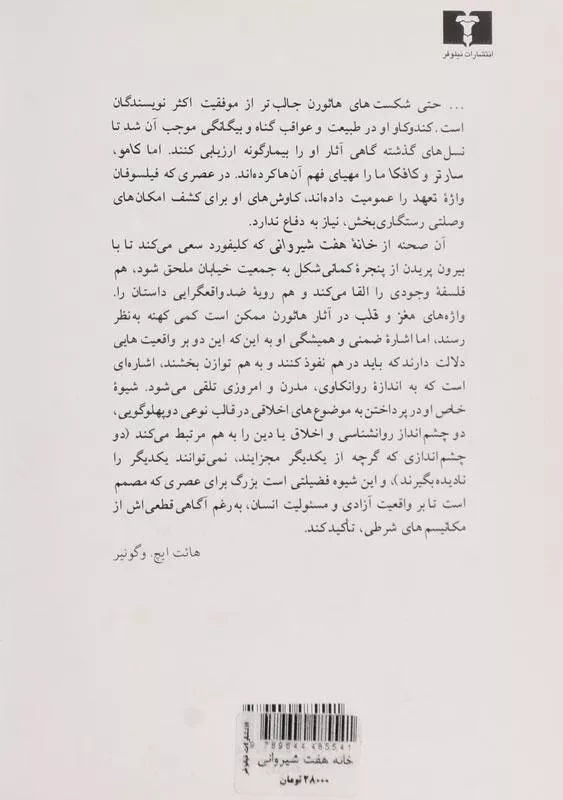 انتشارات نیلوفر
... حتی شکست‌های هاثورن جالب‌تر از موفقیت اکثر نویسندگان
است. کندوکاو او در طبیعت و عواقب گناه و بیگانگی موجب آن شد تا
نسل‌های گذشته گاهی آثار او را بیمارگونه ارزیابی کنند. اما کامو،
سارتر و کافکا ما را مهیای فهم آن‌ها کرده‌اند. در عصری که فیلسوفان
واژهٔ تعهد را عمومیت داده‌اند، کاوش‌های او برای کشف امکان‌های
وصلتی رستگاری‌بخش، نیاز به دفاع ندارد.
آن صحنه از خانهٔ هفت شیروانی که کلیفورد سعی می‌کند تا با
بیرون پریدن از پنجرهٔ کمانی‌شکل به جمعیت خیابان ملحق شود، هم
فلسفهٔ وجودی را القا می‌کند و هم رویهٔ ضدواقعگرایی داستان را.
واژه‌های مغز و قلب در آثار هاثورن ممکن است کمی کهنه به‌نظر
رسند، اما اشارهٔ ضمنی و همیشگی او به این‌که این دو بر واقعیت هایی
دلالت دارند که باید در هم نفوذ کنند و به هم توازن بخشند، اشاره‌ای
است که به اندازهٔ روانکاوی، مدرن و امروزی تلقی می‌شود. شیوهٔ
خاص او در پرداختن به موضوع‌های اخلاقی در قالب نوعی دوپهلوگویی،
دو چشم‌انداز روانشناسی و اخلاق یا دین را به هم مرتبط می‌کند (دو
چشم‌اندازی که گرچه از یکدیگر مجزایند، نمی‌توانند یکدیگر را
نادیده بگیرند)، و این شیوه فضیلتی است بزرگ برای عصری که مصمم
است تا بر واقعیت آزادی و مسئولیت انسان، به‌رغم آگاهی قطعی‌اش از
مکانیسم های شرطی، تأکید کند.
هائت ایچ. وگونیر
انتشارات نیلوفر
789644 485541
خانه هفت شیروانی
۲۸۰۰۰ تومان